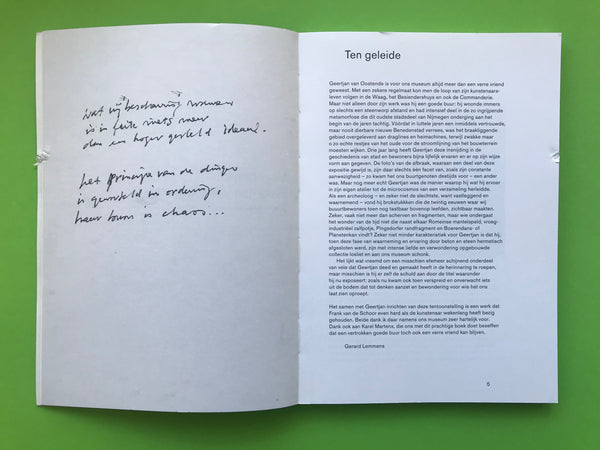 Wat wij beschaving noemen
is in feite niets meer
dan een hoger gesteld ideaal.
het principe van de dingen
is geworteld in ordening,
haar bron is chaos...
Ten geleide
Geertjan van Oostende is voor ons museum altijd meer dan een verre vriend
geweest. Met een zekere regelmaat kon men de loop van zijn kunstenaars-
leven volgen in de Waag, het Besiendershuys en ook de Commanderie.
Maar niet alleen door zijn werk was hij een goede buur: hij woonde immers
op slechts een steenworp afstand en had intensief deel in de zo ingrijpende
metamorfose die dit oudste stadsdeel van Nijmegen onderging aan het
begin van de jaren tachtig. Vóórdat in luttele jaren een inmiddels vertrouwde,
maar nooit dierbare nieuwe Benedenstad verrees, was het braakliggende
gebied overgeleverd aan draglines en heimachines, terwijl zwakke maar
o zo echte restjes van het oude voor de stroomlijning van het bouwterrein
moesten wijken. Drie jaar lang heeft Geertjan deze insnijding in de
geschiedenis van stad en bewoners bijna lijfelijk ervaren en er op zijn wijze
vorm aan gegeven. De foto's van de afbraak, waaraan een deel van deze
expositie gewijd is, zijn daar slechts één facet van, zoals zijn constante
aanwezigheid – zo kwam het ons buurtgenoten destijds voor – een ander
was. Maar nog meer echt Geertjan was de manier waarop hij wat hij ervoer
in zijn eigen atelier tot de microcosmos van een verzameling herleidde.
Als een archeoloog – en zeker niet de slechtste, want vasthoudend en
waarnemend – vond hij brokstukken die de twintig eeuwen waar wij
buurtbewoners toen nog tastbaar bovenop leefden, zichtbaar maakten.
Zeker, vaak niet meer dan scherven en fragmenten, maar wie ondergaat
het wonder van de tijd niet die naast elkaar Romeinse mantelspeld, vroeg-
industriëel zalfpotje, Pingsdorfer randfragment en Boerendans- of
Planetenkan vindt? Zeker niet minder karakteristiek voor Geertjan is dat hij,
toen deze fase van waarneming en ervaring door beton en steen hermetisch
afgesloten werd, zijn met intense liefde en verwondering opgebouwde
collectie tosliet en aan ons museum schonk.
Het lijkt wat vreemd om een misschien efemeer schijnend onderdeel
van vele dat Geertjan deed en gemaakt heeft in de herinnering te roepen,
maar misschien is hij er zelf de schuld aan door de titel waaronder
hij nu exposeert; zoals nu kwam ook toen verspreid en onverwacht iets
uit de bodem dat tot denken aanzet en bewondering voor wie het ons
laat zien oproept.
Het samen met Geertjan inrichten van deze tentoonstelling is een werk dat
Frank van de Schoor even hard als de kunstenaar wekenlang heeft bezig
gehouden. Beide dank ik daar namens ons museum zeer hartelijk voor.
Dank ook aan Karel Martens, die ons met dit prachtige boek doet beseffen
dat een vertrokken goede buur toch ook een verre vriend kan blijven.
Gerard Lemmens
5